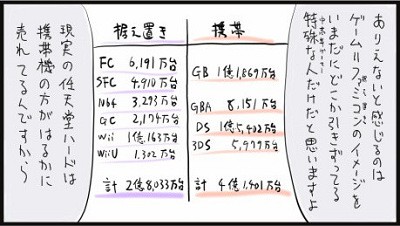 ありえないと感じるのは
ゲーム=ファミコンのイメージを
いまだにどこか引きずってる
特殊な人だけだと思いますよ
据え置き
FC 6,191万台
SFC 4,910万台
N64 3,293万台
GC 2,174万台
Wii 1億163万台
WiiU 1,302万台
計 2億8,033万台
携帯
GB 1億1,869万台
GBA 8,151万台
DS 1億5,402万台
3DS 5,979万台
計 4億1,401万台
現実の任天堂ハードは
携帯機の方がはるかに
売れてるんですから